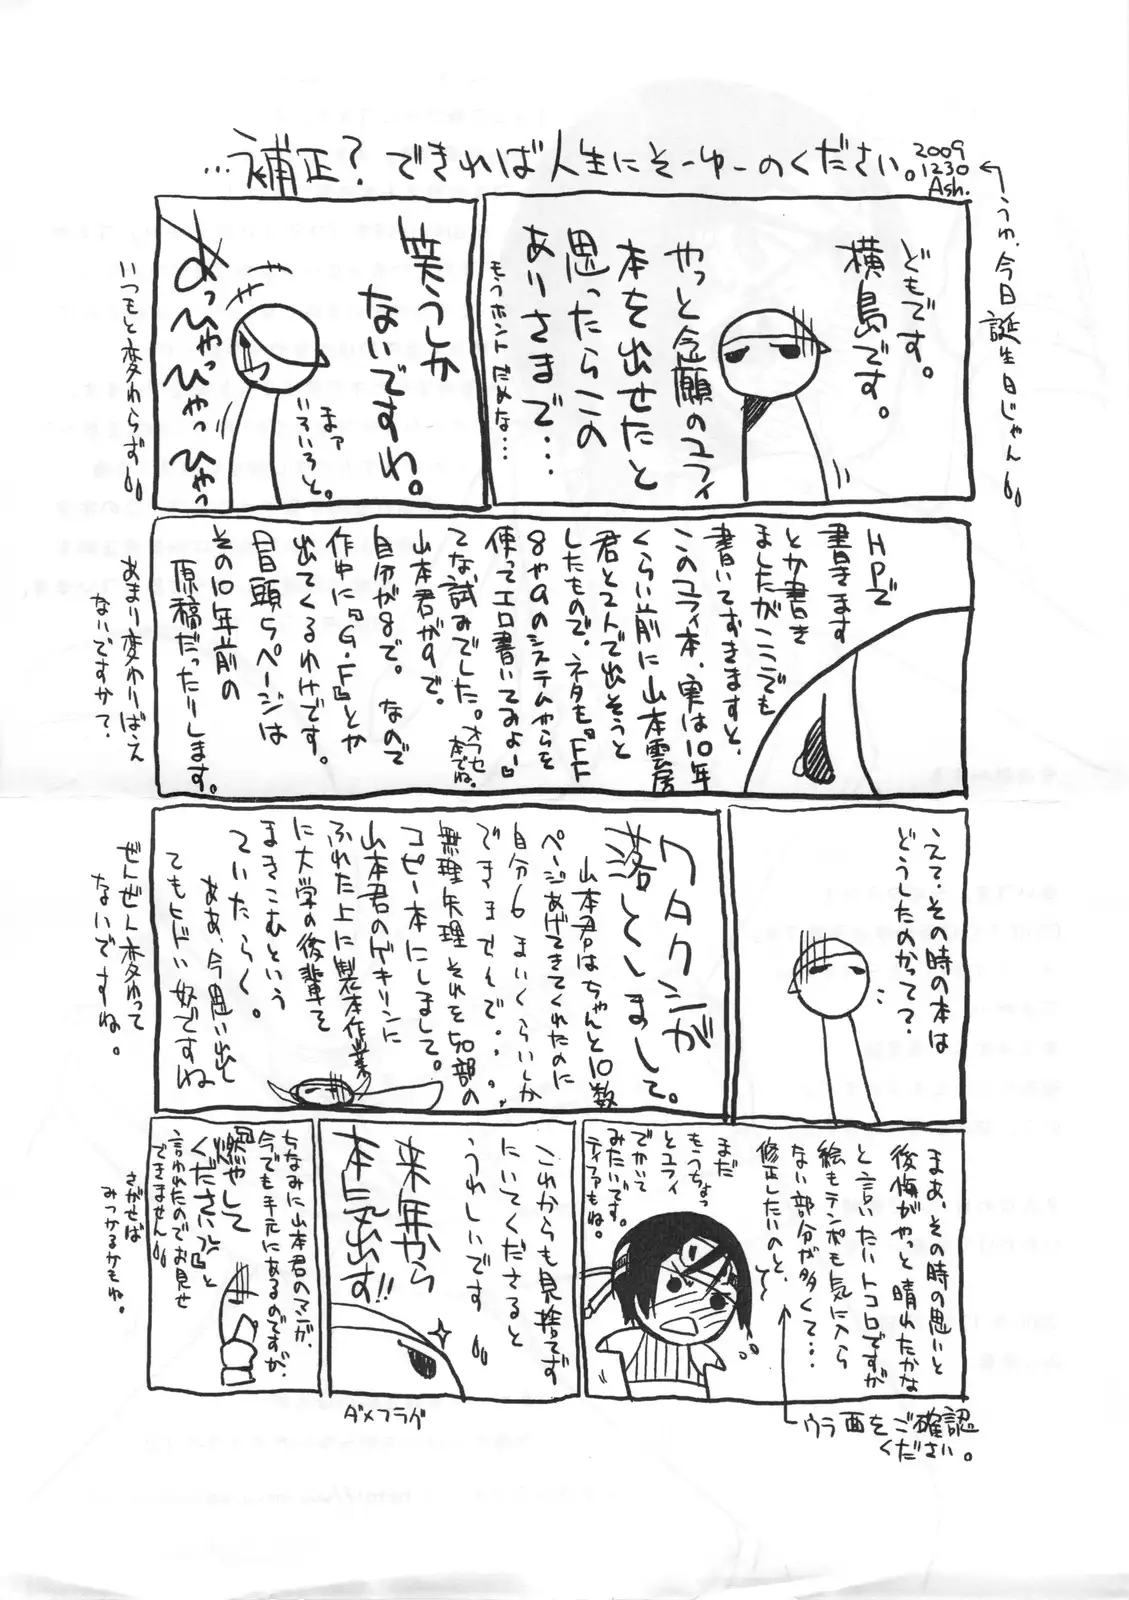 …補正？できれば人生にそーゆーのください。
2009
1230
Ash.
←うわ、今日誕生日じゃん
どもです。
横島です。
やっと念願のユフィ
本を出せたと
思ったらこの
ありさまで…
もうホントだめな…
笑うしか
ないですね。
まァ
いろいろと。
あっひゃっひゃっひゃっ
いつもと変わらず
HPで
書きます
とか書き
ましたがここでも
書いてすきますと、
このユフィ本、実は10年
くらい前に山本雲居
君と2人で出そうと
したもので、ネタも『FF
8や9のシステムやらを
使ってエロ書いてみよう』
てな試みでした。
オフセ
本でね。
山本君が9で、
自分が8で。なので
作中に『G・F』とか
出てくるわけです。
冒頭5ページは
その10年前の
原稿だったりします。
あまり変わりばえ
ないですか？
え？その時の本は
どうしたのかって？
ワタクシが
落としまして。
山本君はちゃんと10数
ページあげてきてくれたのに
自分6まいくらいしか
できませんで、
無理矢理それを50部の
コピー本にしまして。
山本君のゲキリンに
ふれた上に製本作業
に大学の後輩を
まきこむという
ていたらく。
ああ、今思い出し
てもヒドい奴ですね
ぜんぜん変わって
ないですね。
まぁ、その時の思いと
後悔がやっと晴れたかな
と言いたいトコロですが
絵もテンポも気に入ら
ない部分が多くて…
修正したいのと、
まだ
もうちょっ
とユフィ
でかいて
みたいです。
ティファもね。
ウラ面をご確認
ください。
これからも見捨てず
にいてくださると
うれしいです
来年から
本気出す!!
ダメフラグ
ちなみに山本君のマンガ、
今でも手元にあるのですが、
『燃やして
ください』と
言われたのでお見せ
できません
さがせば
みつかるかもね。